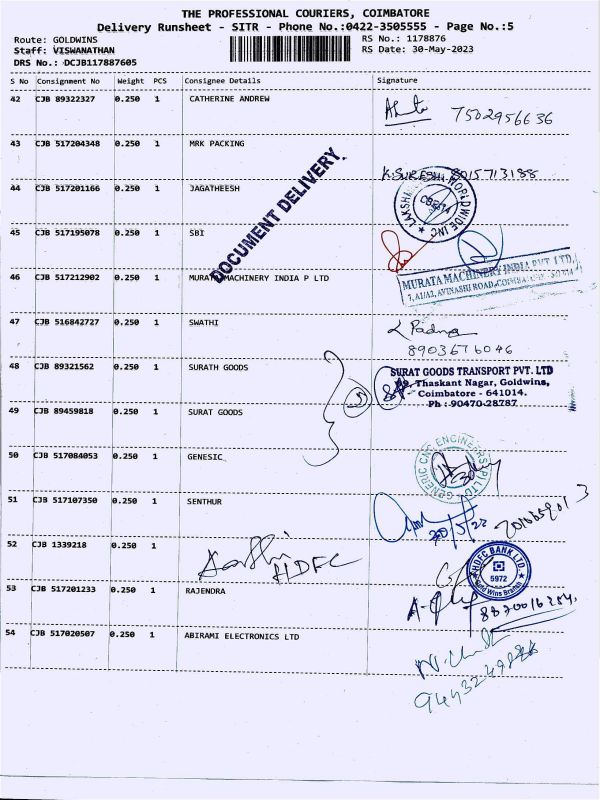 THE PROFESSIONAL COURIERS, COIMBATORE
Delivery Runsheet - SITR - Phone No.:0422-3505555 - Page No.:5
Route: GOLDWINS RS No.: 1178876
Staff: VISWANATHAN RS Date: 30-May-2023
DRS No.: DCJB117887605
S No Consignment No Weight PCS Consignee Details Signature
42 CJB 89322327 0.250 1 CATHERINE ANDREW
7502956636
43 CJB 517204348 0.250 1 MRK PACKING
K.SURESH 8015713188
DOCUMENT DELIVERY.
44 CJB 517201166 0.250 1 JAGATHEESH
45 CJB 517195078 0.250 1 SBI
46 CJB 517212902 0.250 1 MURATA MACHINERY INDIA P LTD
MURATA MACHINERY INDIA PVT. LTD.
47 CJB 516842727 0.250 1 SWATHI
8903676046
48 CJB 89321562 0.250 1 SURATH GOODS
SURAT GOODS TRANSPORT PVT. LTD
Thaskant Nagar, Goldwins,
Coimbatore - 641014.
Ph : 90470-28787
49 CJB 89459818 0.250 1 SURAT GOODS
50 CJB 517084053 0.250 1 GENESIC
GENERIC CNC ENGINEERS (P) LTD
51 CJB 517107350 0.250 1 SENTHUR
52 CJB 1339218 0.250 1
HDFC
HDFC BANK LTD.
5972
Gold Wins Branch
53 CJB 517201233 0.250 1 RAJENDRA
54 CJB 517020507 0.250 1 ABIRAMI ELECTRONICS LTD